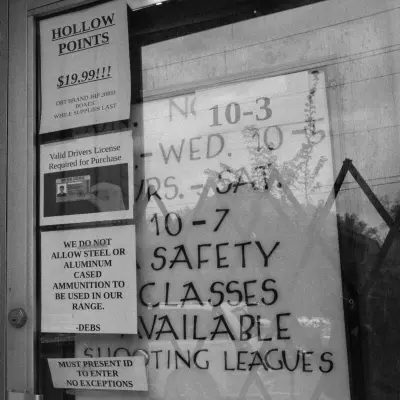 HOLLOW
POINTS
$19.99!!!
BOXES.
WHILE SUPPLIES LAST
Valid Drivers License
Required for Purchase
WE DO NOT
ALLOW STEEL OR
ALUMINUM
CASED
AMMUNITION TO
BE USED IN OUR
RANGE.
-DEBS
MUST PRESENT ID
TO ENTER
NO EXCEPTIONS
10-3
-WED. 10-
RS.-SAT.
10-7
SAFETY
CLASSES
AVAILABLE
SHOOTING LEAGUES